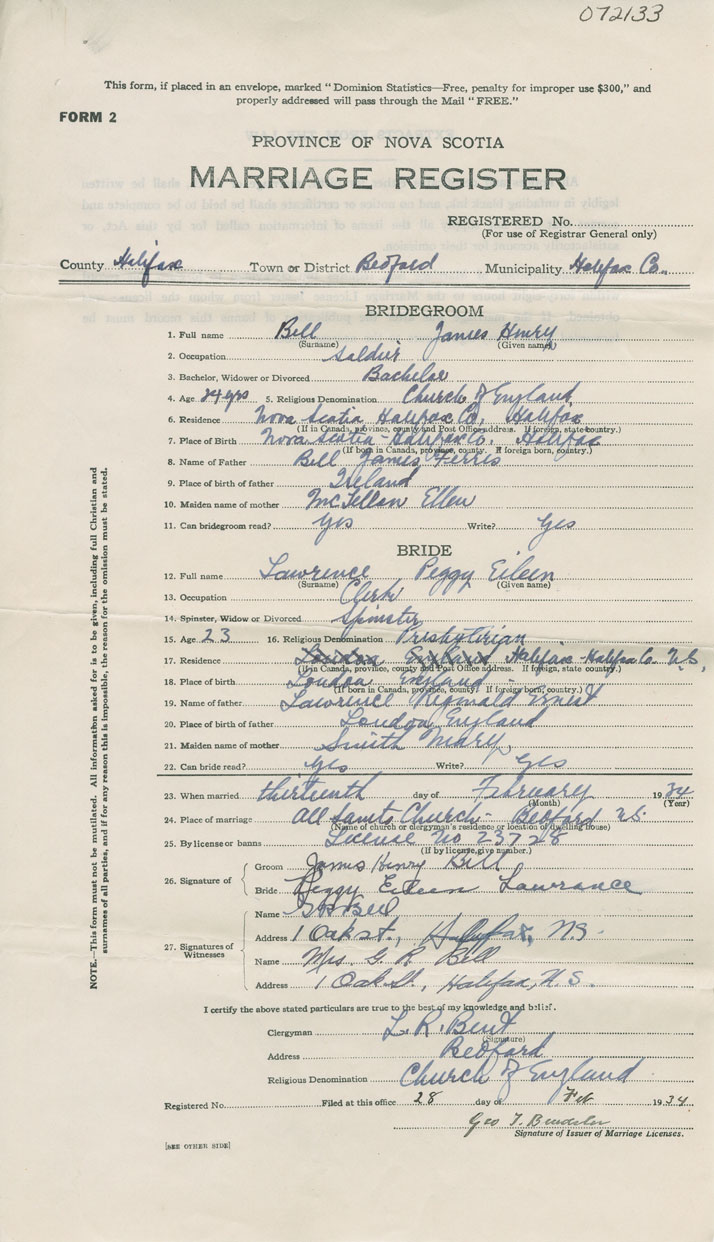 072133
This form, if placed in an envelope, marked "Dominion Statistics—Free, penalty for improper use $300," and
properly addressed will pass through the Mail "FREE."
FORM 2
PROVINCE OF NOVA SCOTIA
MARRIAGE REGISTER
REGISTERED No.
(For use of Registrar General only)
County Halifax Town or District Bedford Municipality Halifax Co.
BRIDEGROOM
1. Full name Bell James Henry
(Surname) (Given names)
2. Occupation Soldier
3. Bachelor, Widower or Divorced Bachelor
4. Age 24 yrs 5. Religious Denomination Church of England
6. Residence Nova Scotia Halifax Co, Halifax
(If in Canada, province, county and Post Office address. If foreign, state country.)
7. Place of Birth Nova Scotia - Halifax Co. Halifax
(If born in Canada, province, county. If foreign born, country.)
8. Name of Father Bell James Ferris
9. Place of birth of father Ireland
10. Maiden name of mother McLellan Ellen
11. Can bridegroom read? Yes Write? Yes
BRIDE
12. Full name Lawrence Peggy Eileen
(Surname) (Given name)
13. Occupation Clerk
14. Spinster, Widow or Divorced Spinster
15. Age 23 16. Religious Denomination Presbyterian
17. Residence London England Halifax - Halifax Co. N.S,
(If in Canada, province, county and Post Office address. If foreign, state country.)
18. Place of birth London England
(If born in Canada, province, county. If foreign born, country.)
19. Name of father Lawrence Reginald Ernest
20. Place of birth of father London, England
21. Maiden name of mother Smith Mary,
22. Can bride read? Yes Write? Yes
23. When married thirteenth day of February 1934
(Month) (Year)
24. Place of marriage All Saints Church - Bedford N.S.
(Name of church or clergyman's residence or location of dwelling house)
25. By license or banns License No 23728
(If by license, give number.)
26. Signature of
Groom James Henry Bell
Bride Peggy Eileen Lawrance
27. Signatures of Witnesses
Name G R Bell
Address 1 Oak st., Halifax, N.S.
Name Mrs. G. R. Bell
Address 1 Oak St., Halifax, N.S.
I certify the above stated particulars are true to the best of my knowledge and belief.
Clergyman L. R. Bent
(Signature)
Address Bedford
Religious Denomination Church of England
Registered No. Filed at this office 28 day of Feb 1934
Geo T.
Signature of Issuer of Marriage Licenses.
[SEE OTHER SIDE]
NOTE.—This form must not be mutilated. All information asked for is to be given, including full Christian and
surnames of all parties, and if for any reason this is impossible, the reason for the omission must be stated.